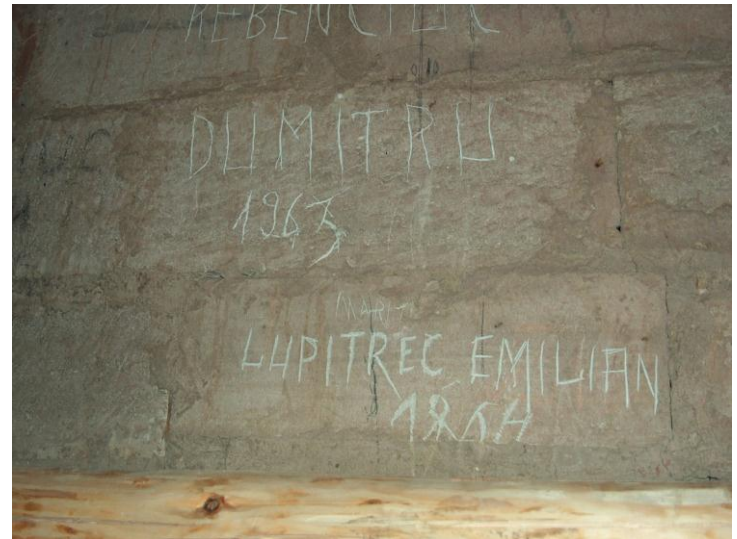 REBENCIUC
DUMITRU
1963
LUPITREC EMILIAN
1964